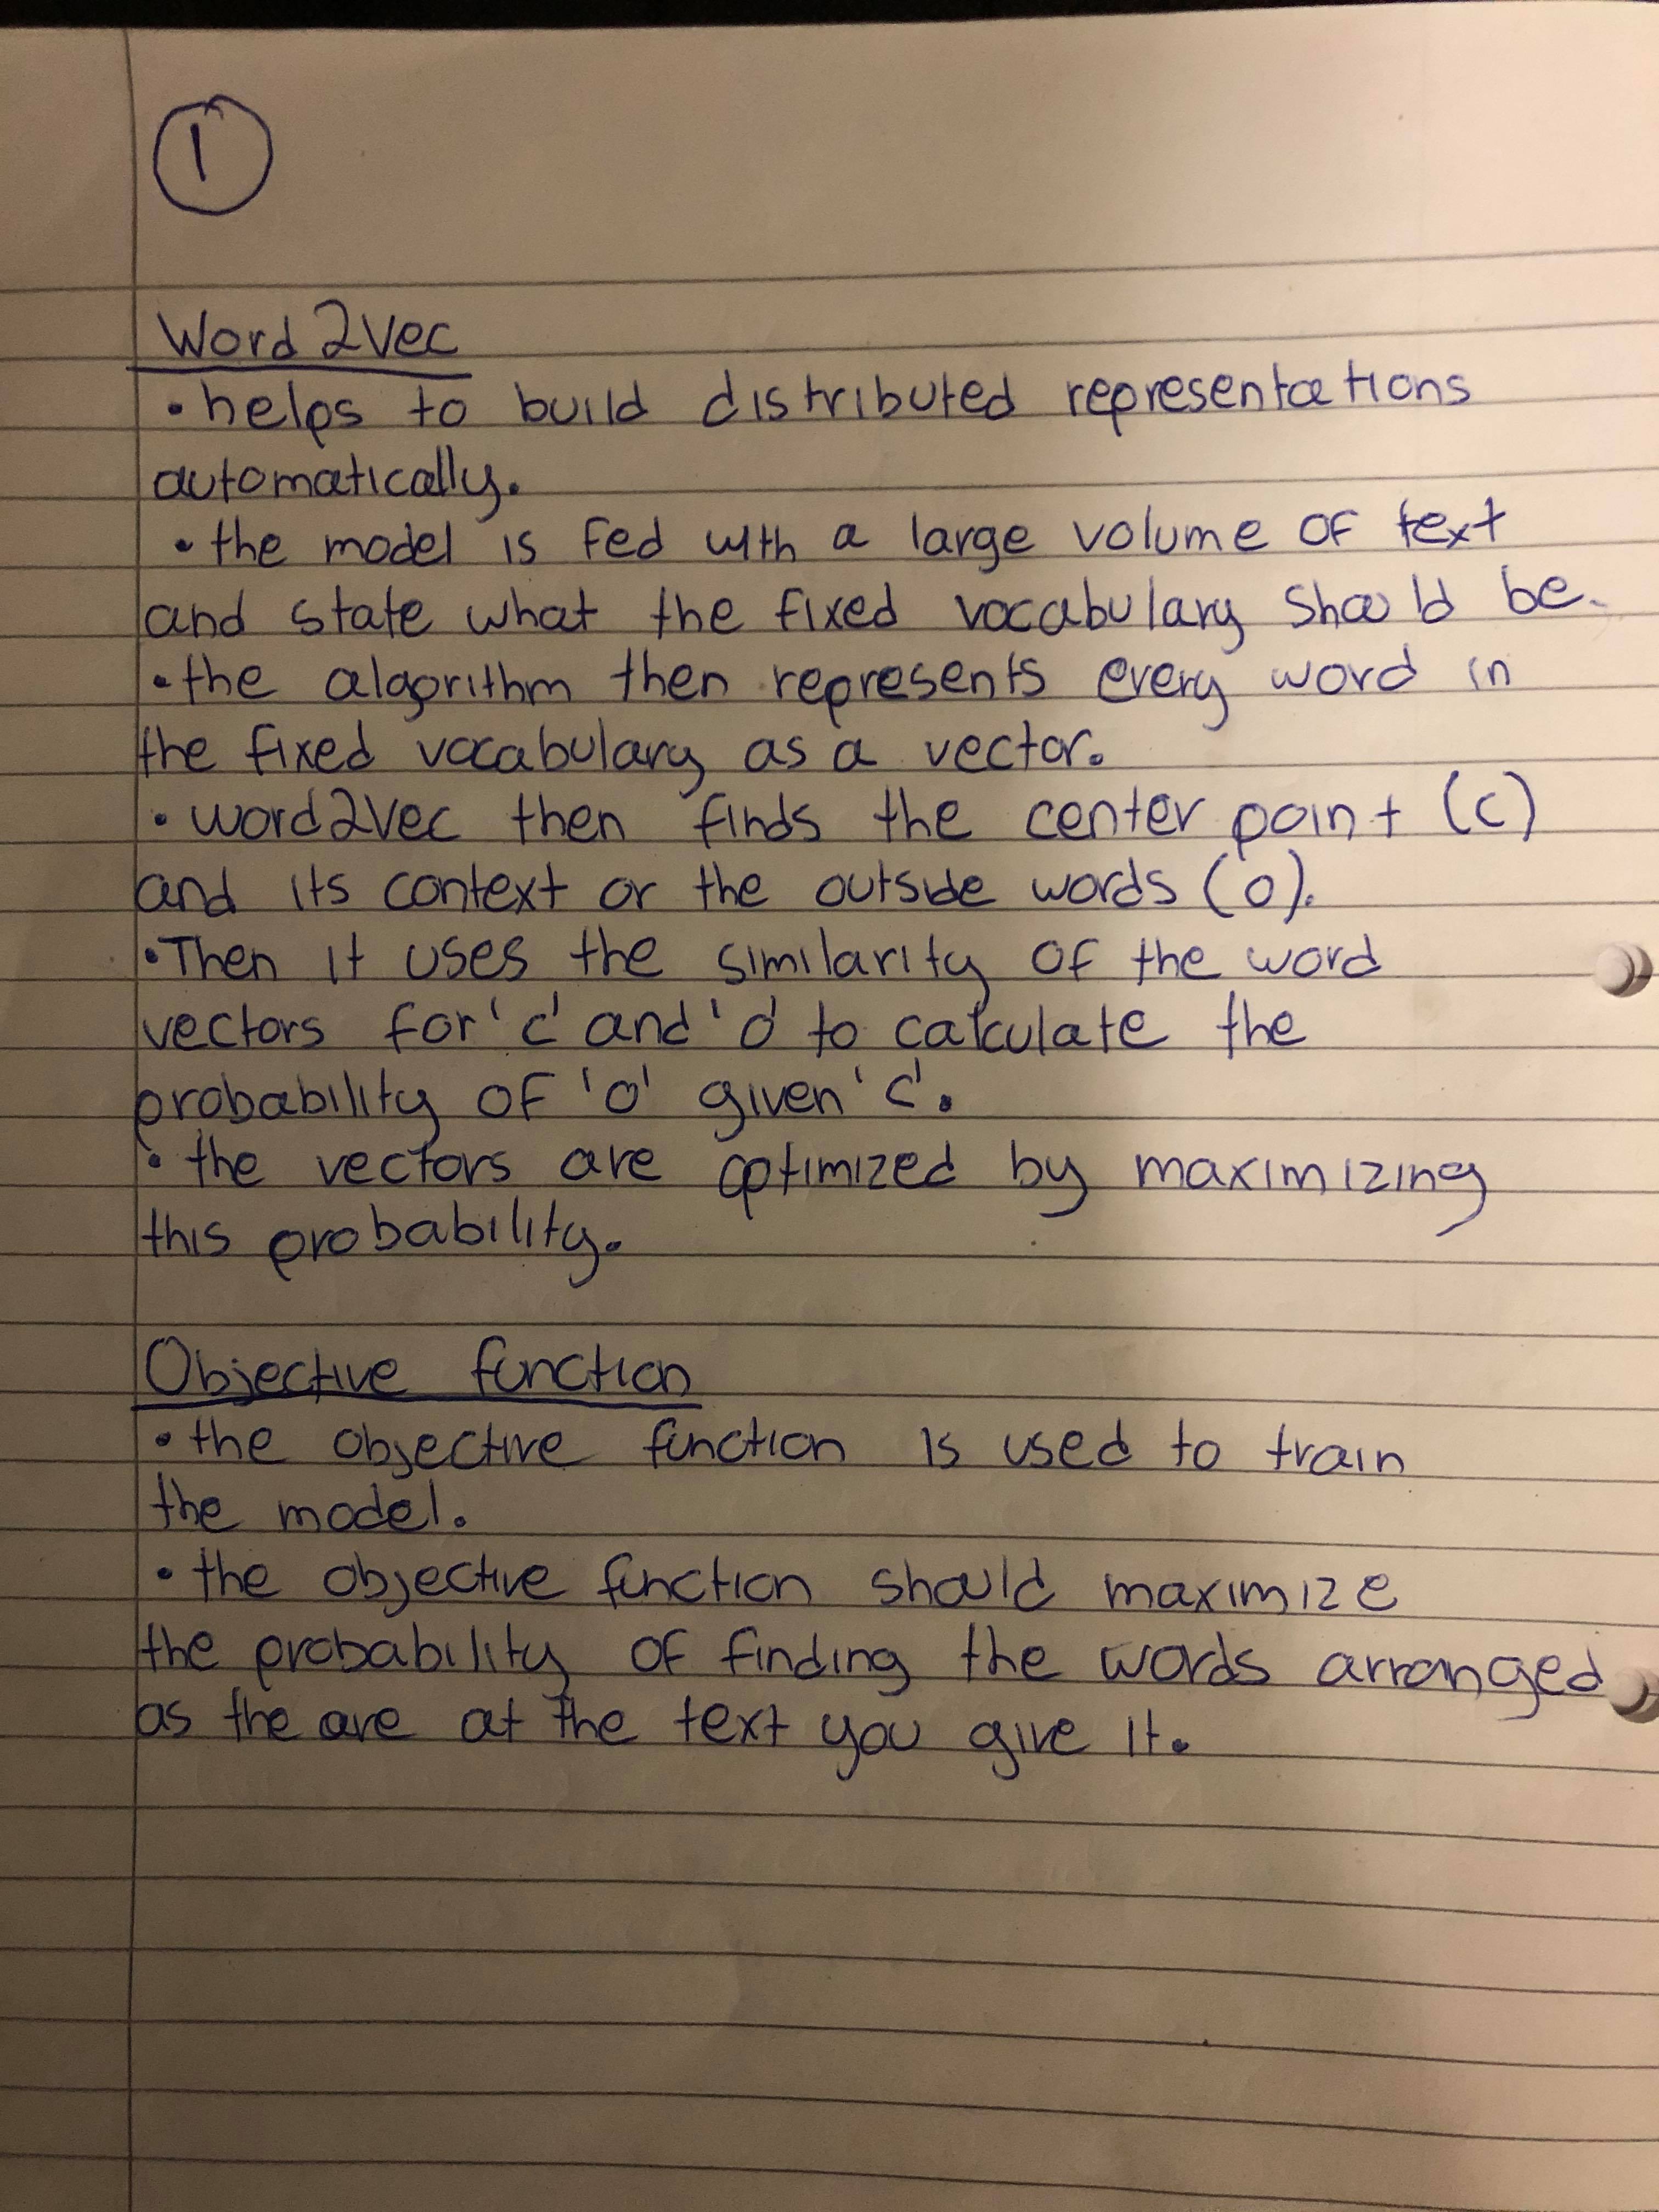 1
Word2Vec
• helps to build distributed representations
automatically.
• the model is fed with a large volume of text
and state what the fixed vocabulary should be.
• the algorithm then represents every word in
the fixed vocabulary as a vector.
• word2vec then finds the center point (c)
and its context or the outside words (o).
• Then it uses the similarity of the word
vectors for 'c' and 'o' to calculate the
probability of 'o' given 'c'.
• the vectors are optimized by maximizing
this probability.
Objective function
• the objective function is used to train
the model.
• the objective function should maximize
the probability of finding the words arranged
as the are at the text you give it.